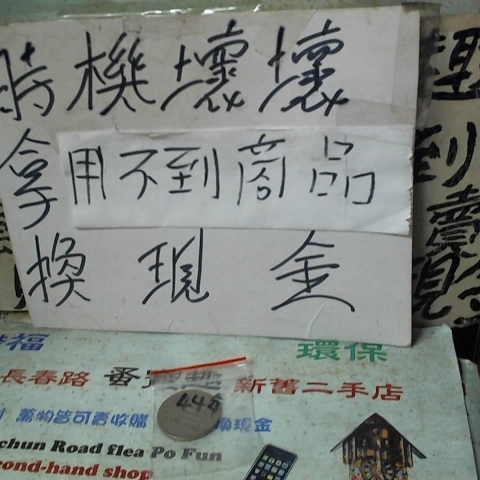 時機壞壞
拿用不到商品
換現金
到賣
現金
幸福
環保
長春路 蚤寶趣 新舊二手店
萬物皆可考收購 換現金
chun Road flea Po Fun
ond-hand shop
44g